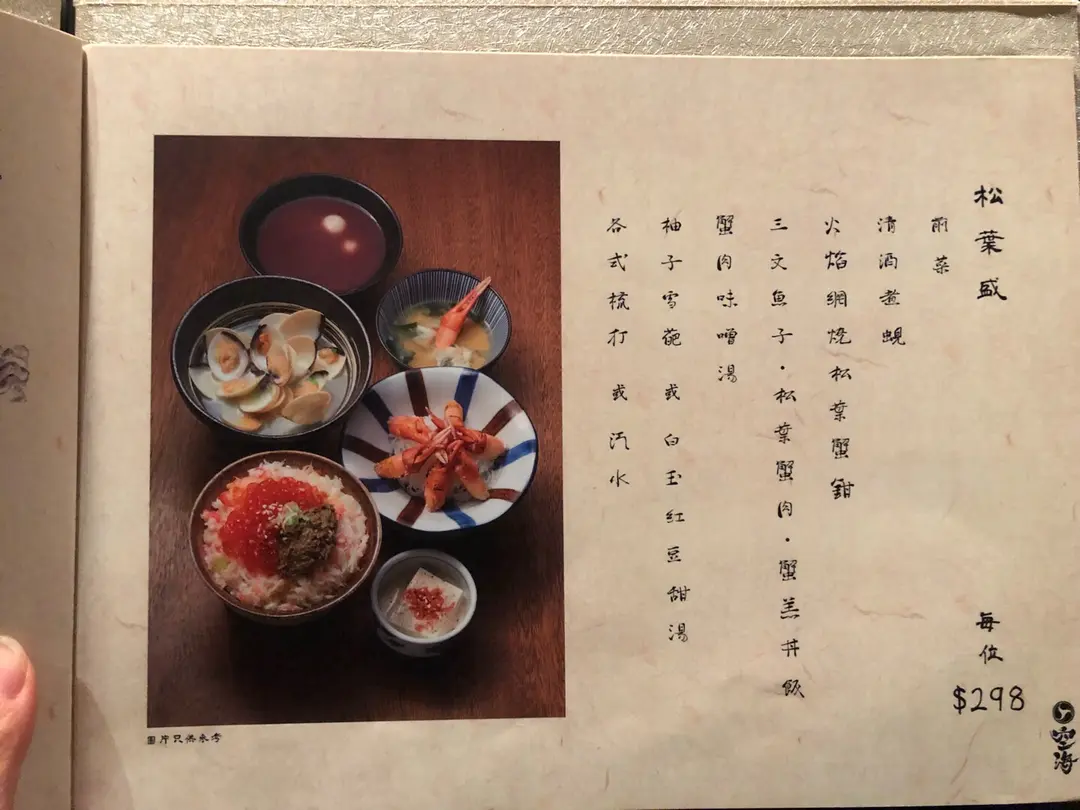 松葉盛
前菜
清酒煮蜆
火焰網燒松葉蟹鉗
三文魚子・松葉蟹肉・蟹羔丼飯
蟹肉味噌湯
柚子雪葩 或 白玉紅豆甜湯
各式梳打 或 汽水
每位
$298
圖片只供參考
空海